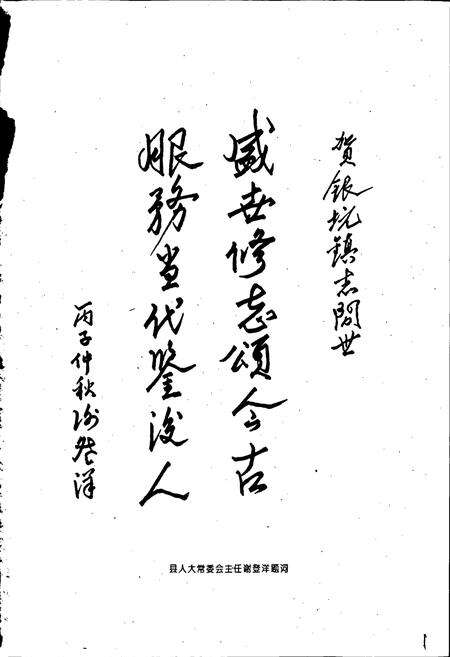 賀银坑鎮志問世
盛世修志頌今古
服務当代鑒後人
丙子仲秋谢登洋
县人大常委会主任谢登洋题词